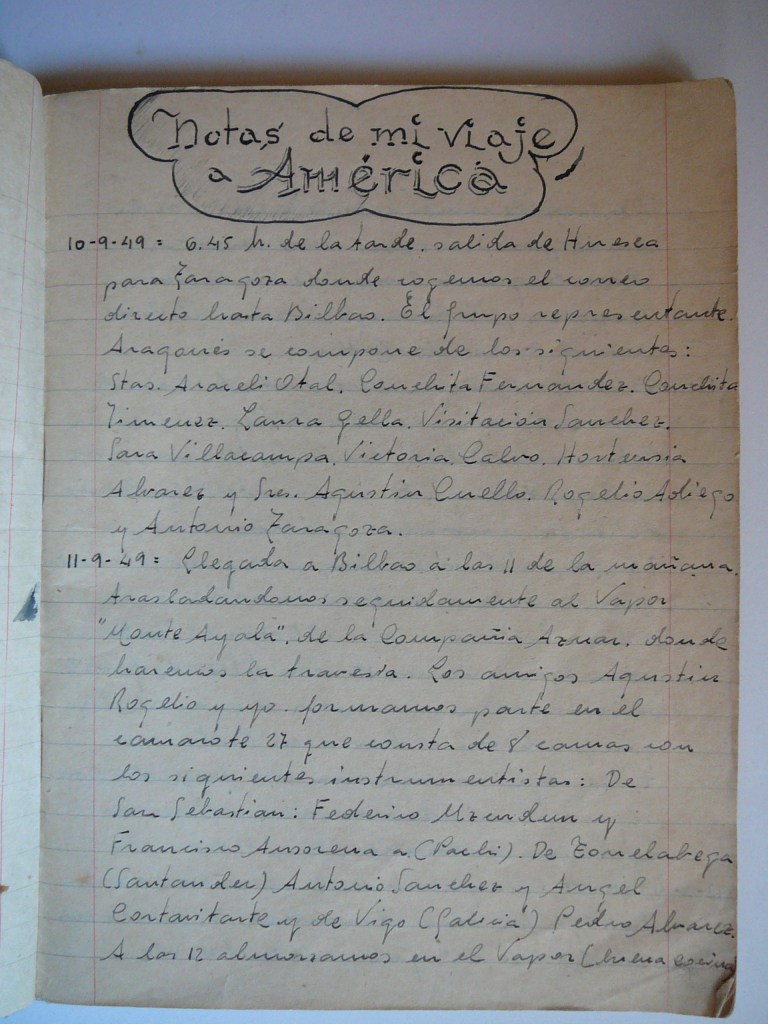 Notas de mi viaje
a América
10-9-49 = 6.45 h. de la tarde. salida de Huesca
para Zaragoza donde cogemos el correo
directo hasta Bilbao. El grupo representante.
Aragonés se compone de los siguientes:
Stas. Araceli Otal. Conchita Fernandez. Conchita
Jimenez. Laura Gella. Visitación Sanchez.
Sara Villacampa. Victoria Calvo. Hortensia
Alvarez y Sres. Agustin Cuello. Rogelio Adiego
y Antonio Zaragoza.
11-9-49 = Llegada a Bilbao a las 11 de la mañana.
trasladandonos seguidamente al Vapor
"Monte Ayala". de la Compañia Aznar. donde
haremos la travesia. Los amigos Agustin
Rogelio y yo. formamos parte en el
camarote 27 que consta de 8 camas con
los siguientes instrumentistas: De
San Sebastian: Federico y
Francisco Ansorena a. (Pachi). De Torrelabega
(Santander) Antonio Sanchez y Angel
y de Vigo (Galicia) Pedro Alvarez.
A las 12 almorzamos en el Vapor (buena cocina